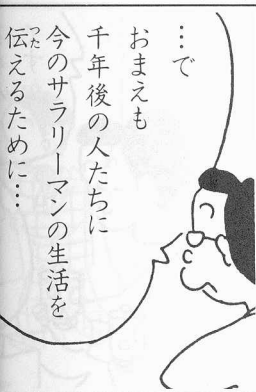 …で
おまえも
千年後の人たちに
今のサラリーマンの生活を
伝えるために…